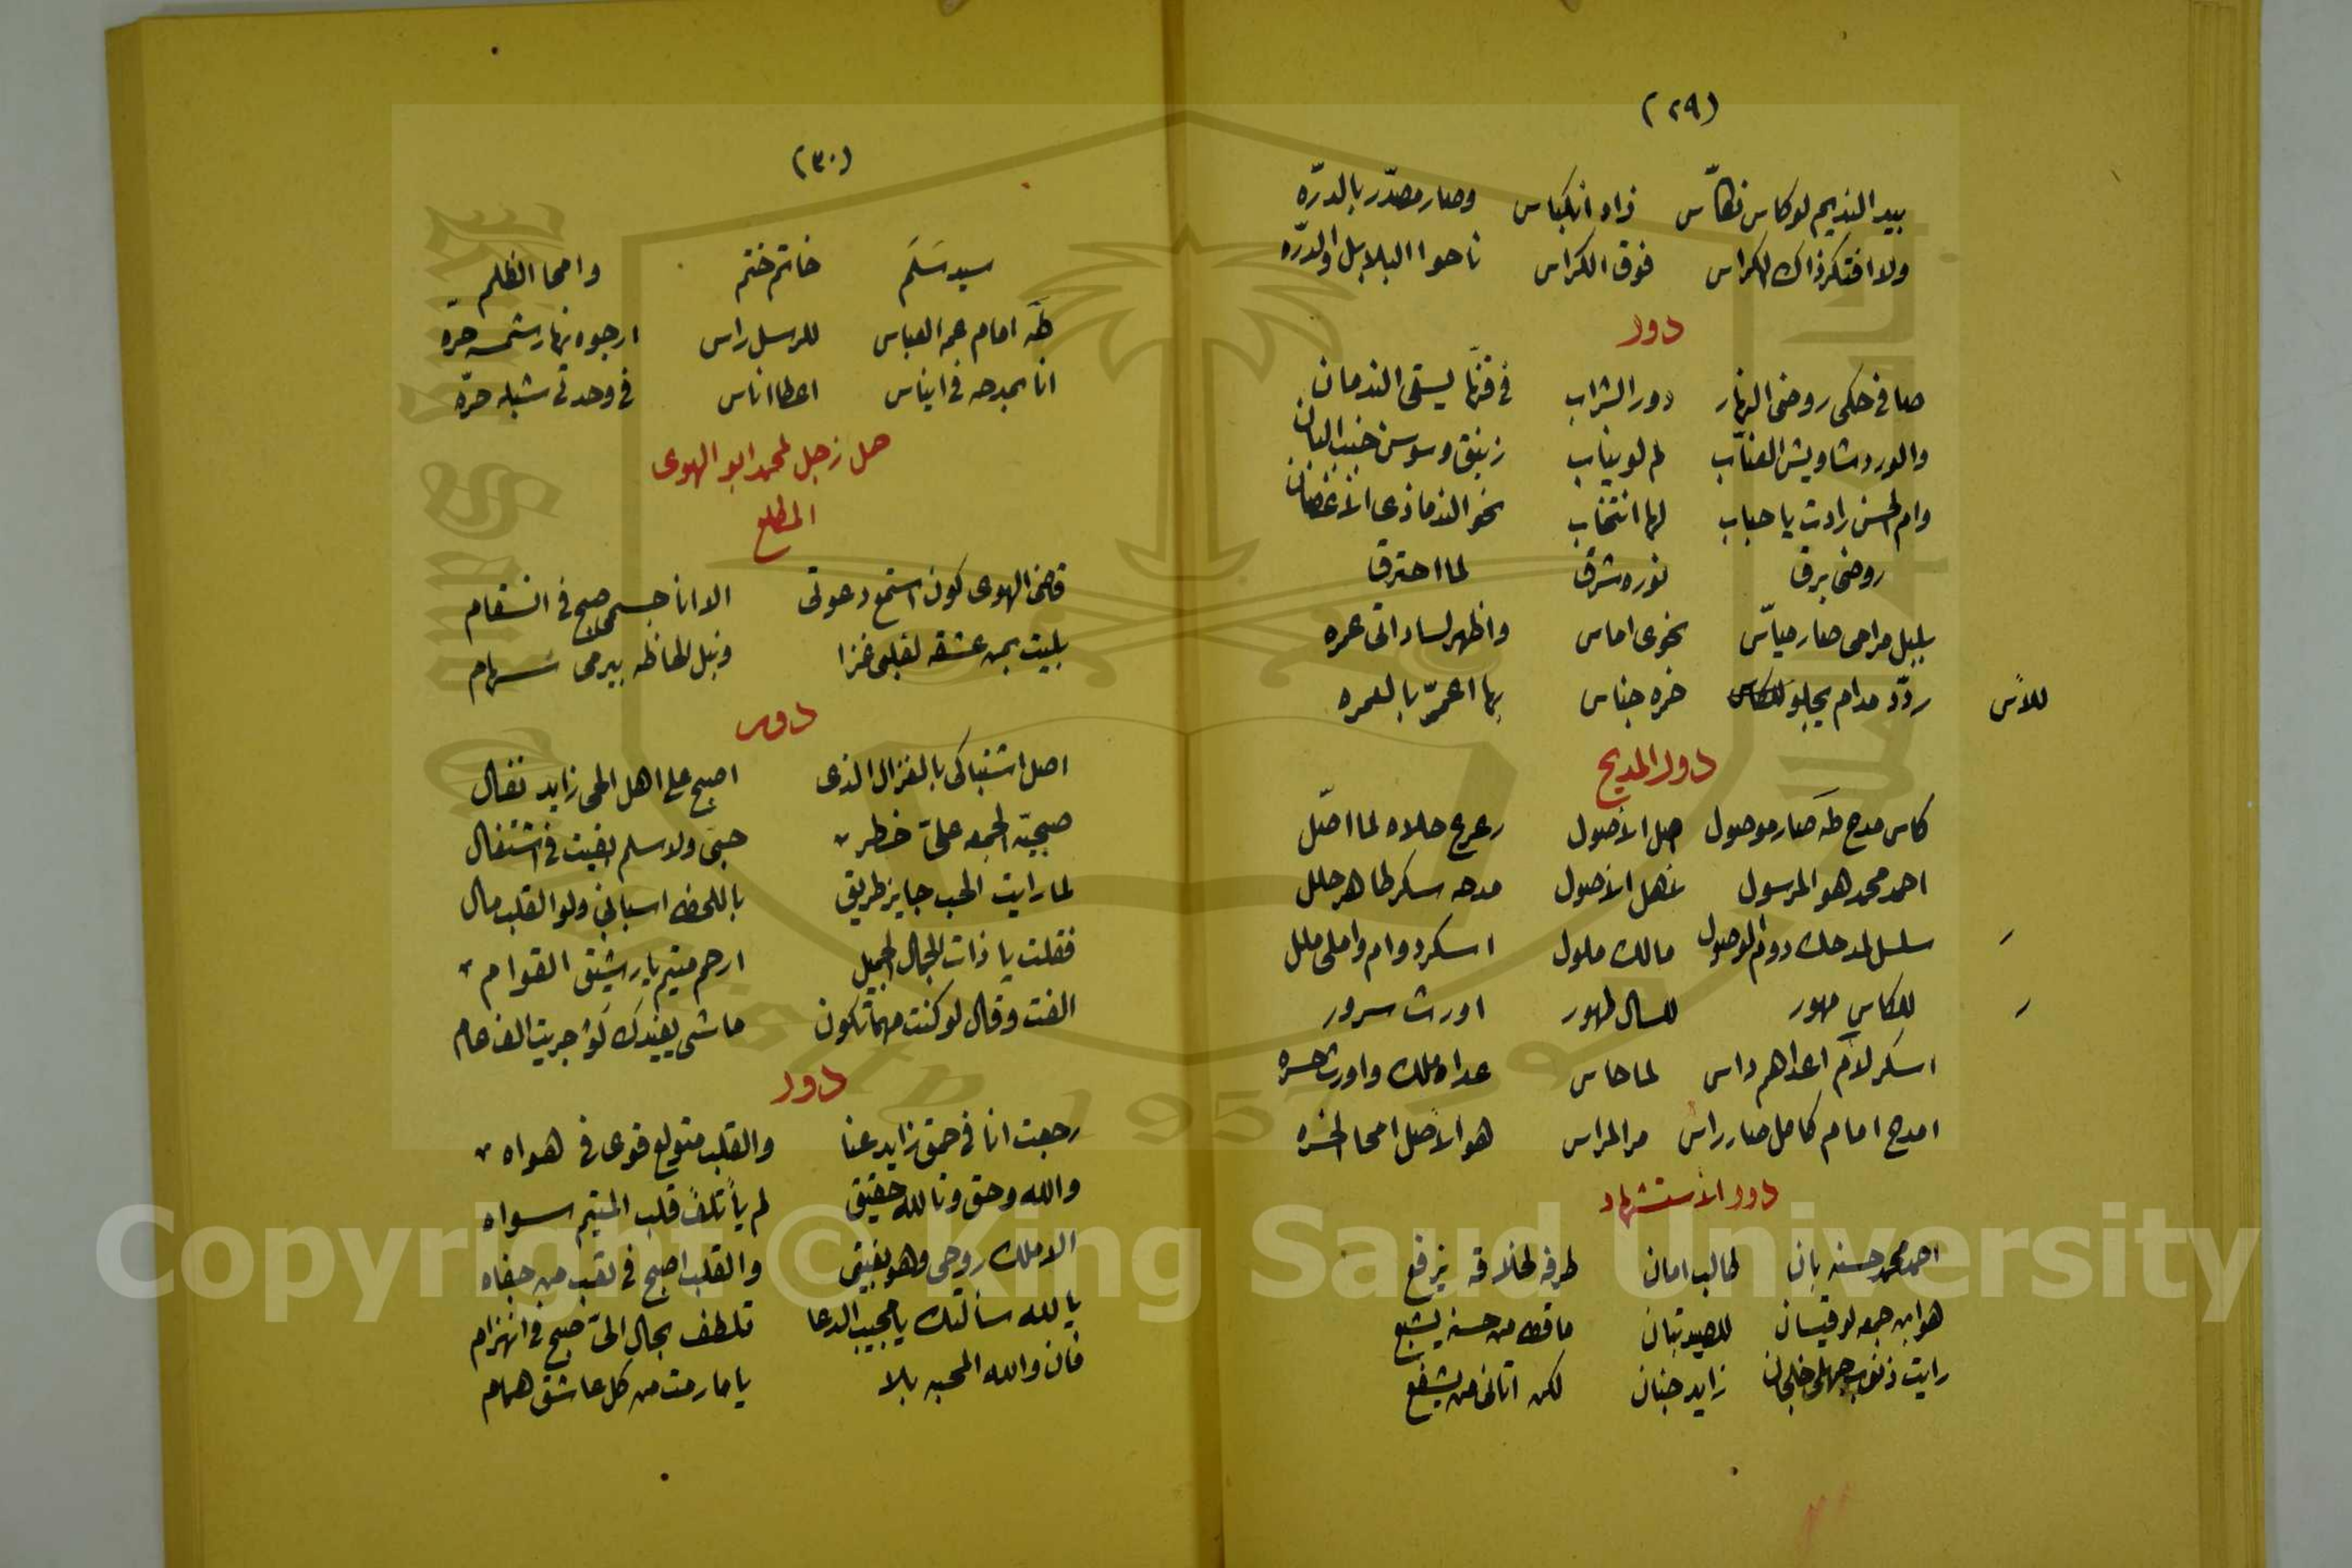 (٢٩)
بيد النديم لو كاس تكاس زاد انكباس وصار مصدّر بالدرّه
ولا افتكر ذاك الكراس فوق الكراس ناحوا البلابل والدرّه
دور
صافى حكى روضى النهار دور الشراب فى قنها يسقى الندمان
والورد شاويش العنّاب لم لو يناب زنبق وسوسن جنب البان
وام الحسن زادت يا حباب لها انتخاب نحو الندما ذى الاغصان
روضى برق نوره شرق لما احترق
بلبل مراحى صار ميّاس نحوى اماس واظهر لساداتى عمره
ردّد مدام يجلو للكاس خره جناس بها اعمّر بالعمره
للاس
دور المديح
كاس مدح طه صار موصول اصل الاصول رعرع حلاه لما اصّل
احمد محمد هو المرسول نهل الاصول مدحه سكر طاهر حلل
سلسل لمدحك دوام الوصول مالك ملول اسكر دوام واملى ملل
للكاس مهور للسال طهور اورث سرور
اسكر لام اعداهم داس لما حاس عداه ملك واورث حسره
امدح امام كامل صار راس مر المراس هو الاصل امحا الخسره
دور الاستشهاد
احمد محمد حسنه بان طالب امان طرفه لخلاقه يزفع
هو ابن جمعه لو قيسان للصيد تبان ما قط من حسنه يشبع
رايت ذنوب جهلى خلجان زايد جنان لكن اتانى من يشفع
(٣٠)
سيد سَلَم خاتم ختم وامحا الظلم
طه امام عم العباس للرسل راس ارجوه نهار شمسه حرّه
انا بمدحه فى ايناس اعطا اناس فى وحدتى شبله حرّه
حمل زجل لمحمد ابو الهوى
المطلع
قاضى الهوى كون استمع دعوتى الا انا جسمى صبح فى انسقام
بليت بمن عشقه لقلبى غزا ونبل لحاظه بيرمى سهام
دور
اصل اشتباكى بالغزال الذى اصبح على اهل الحى زايد نفال
صبحيّة الجمعه علىّ خطر حبى ولا سلم بقيت فى اشتغال
لما رايت الحب جايز طريقى باللحظ اسبانى ولو القلب مال
فقلت يا ذات الجمال الجميل ارحم متيم يا رشيق القوام
الفت وقال لو كنت مهما تكون ماشى يفيدك لو جريت الف عام
دور
رجعت انا فى حمق زايد عنا والقلب متولع قوى فى هواه
والله وحق وتالله حقيق لم يأتلف قلب المتيم سواه
الا ملك روحى وهو بقيقى والقلب اصبح فى تعب من جفاه
يا لله سألتك يا مجيب الدعا تلطف بحال الىّ صبح فى انهزام
فان والله المحبه بلا ياما رمت من كل عاشق همام